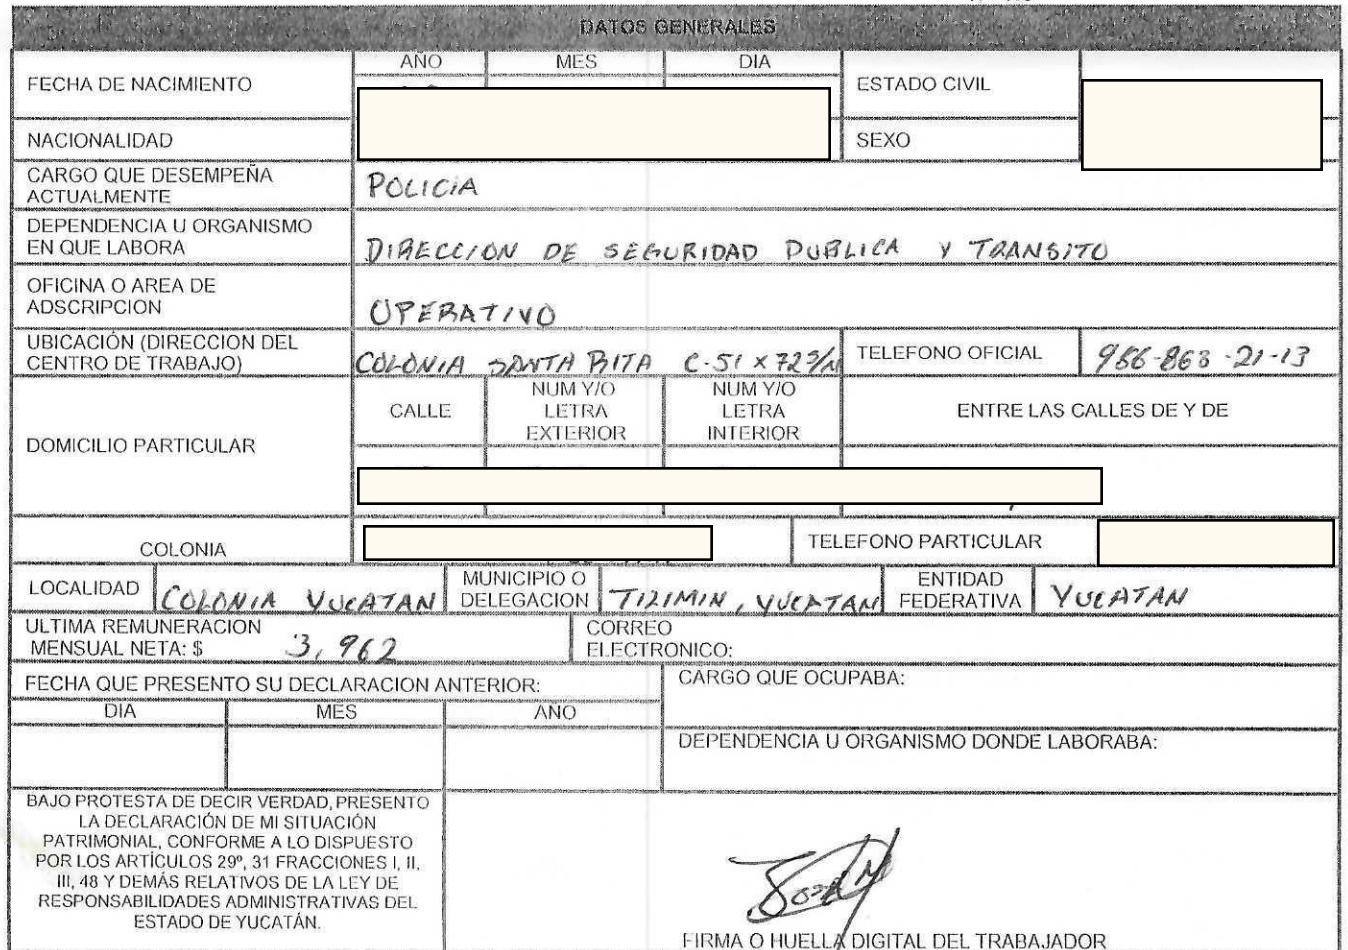 DATOS GENERALES
FECHA DE NACIMIENTO
AÑO MES DIA
ESTADO CIVIL
NACIONALIDAD
SEXO
CARGO QUE DESEMPEÑA
ACTUALMENTE
POLICIA
DEPENDENCIA U ORGANISMO
EN QUE LABORA
DIRECCION DE SEGURIDAD PUBLICA Y TRANSITO
OFICINA O AREA DE
ADSCRIPCION
OPERATIVO
UBICACIÓN (DIRECCION DEL
CENTRO DE TRABAJO)
COLONIA SANTA RITA C-51 x 72 S/N
TELEFONO OFICIAL
986-863-21-13
DOMICILIO PARTICULAR
CALLE
NUM Y/O
LETRA
EXTERIOR
NUM Y/O
LETRA
INTERIOR
ENTRE LAS CALLES DE Y DE
COLONIA
TELEFONO PARTICULAR
LOCALIDAD
COLONIA YUCATAN
MUNICIPIO O
DELEGACION
TIZIMIN, YUCATAN
ENTIDAD
FEDERATIVA
YUCATAN
ULTIMA REMUNERACION
MENSUAL NETA: $ 3,962
CORREO
ELECTRONICO:
FECHA QUE PRESENTO SU DECLARACION ANTERIOR:
DIA MES ANO
CARGO QUE OCUPABA:
DEPENDENCIA U ORGANISMO DONDE LABORABA:
BAJO PROTESTA DE DECIR VERDAD, PRESENTO
LA DECLARACIÓN DE MI SITUACIÓN
PATRIMONIAL, CONFORME A LO DISPUESTO
POR LOS ARTÍCULOS 29º, 31 FRACCIONES I, II,
III, 48 Y DEMÁS RELATIVOS DE LA LEY DE
RESPONSABILIDADES ADMINISTRATIVAS DEL
ESTADO DE YUCATÁN.
FIRMA O HUELLA DIGITAL DEL TRABAJADOR